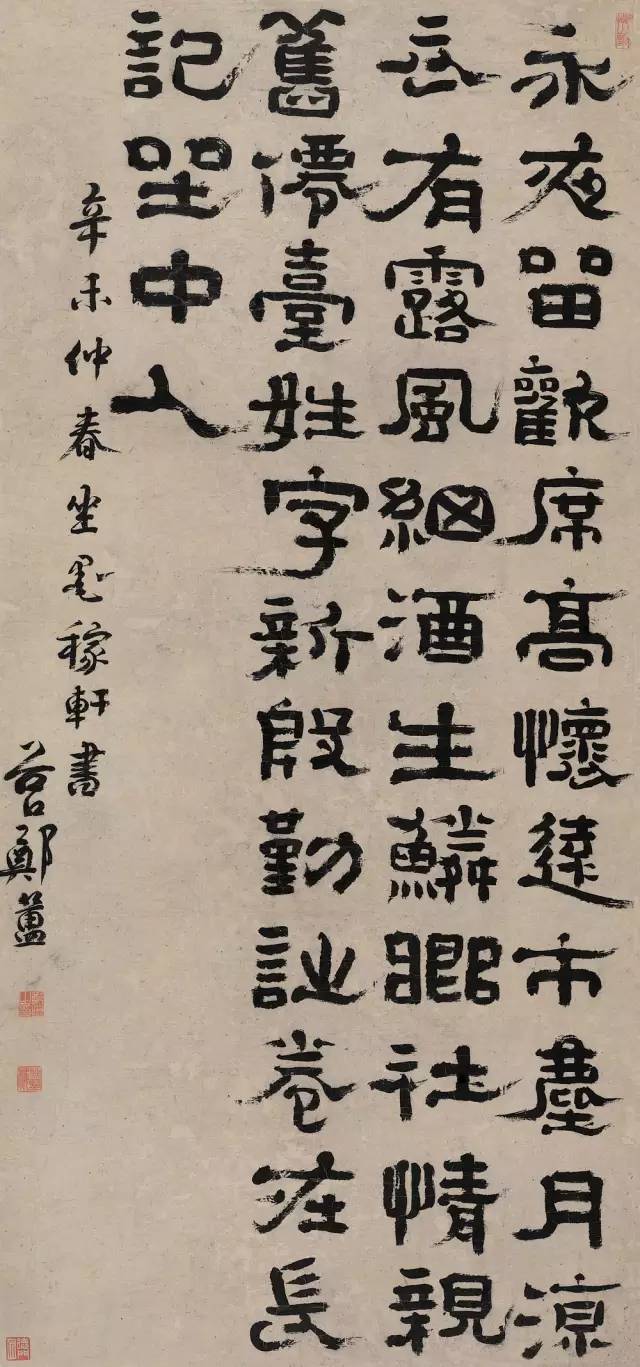 永夜留歡席高懷遠市塵月涼
云有露風細酒生鱗鄉社情親
舊僊臺姓字新殷勤詩卷在長
記坐中人
辛未仲春坐墨稼軒書
谷口鄭簠